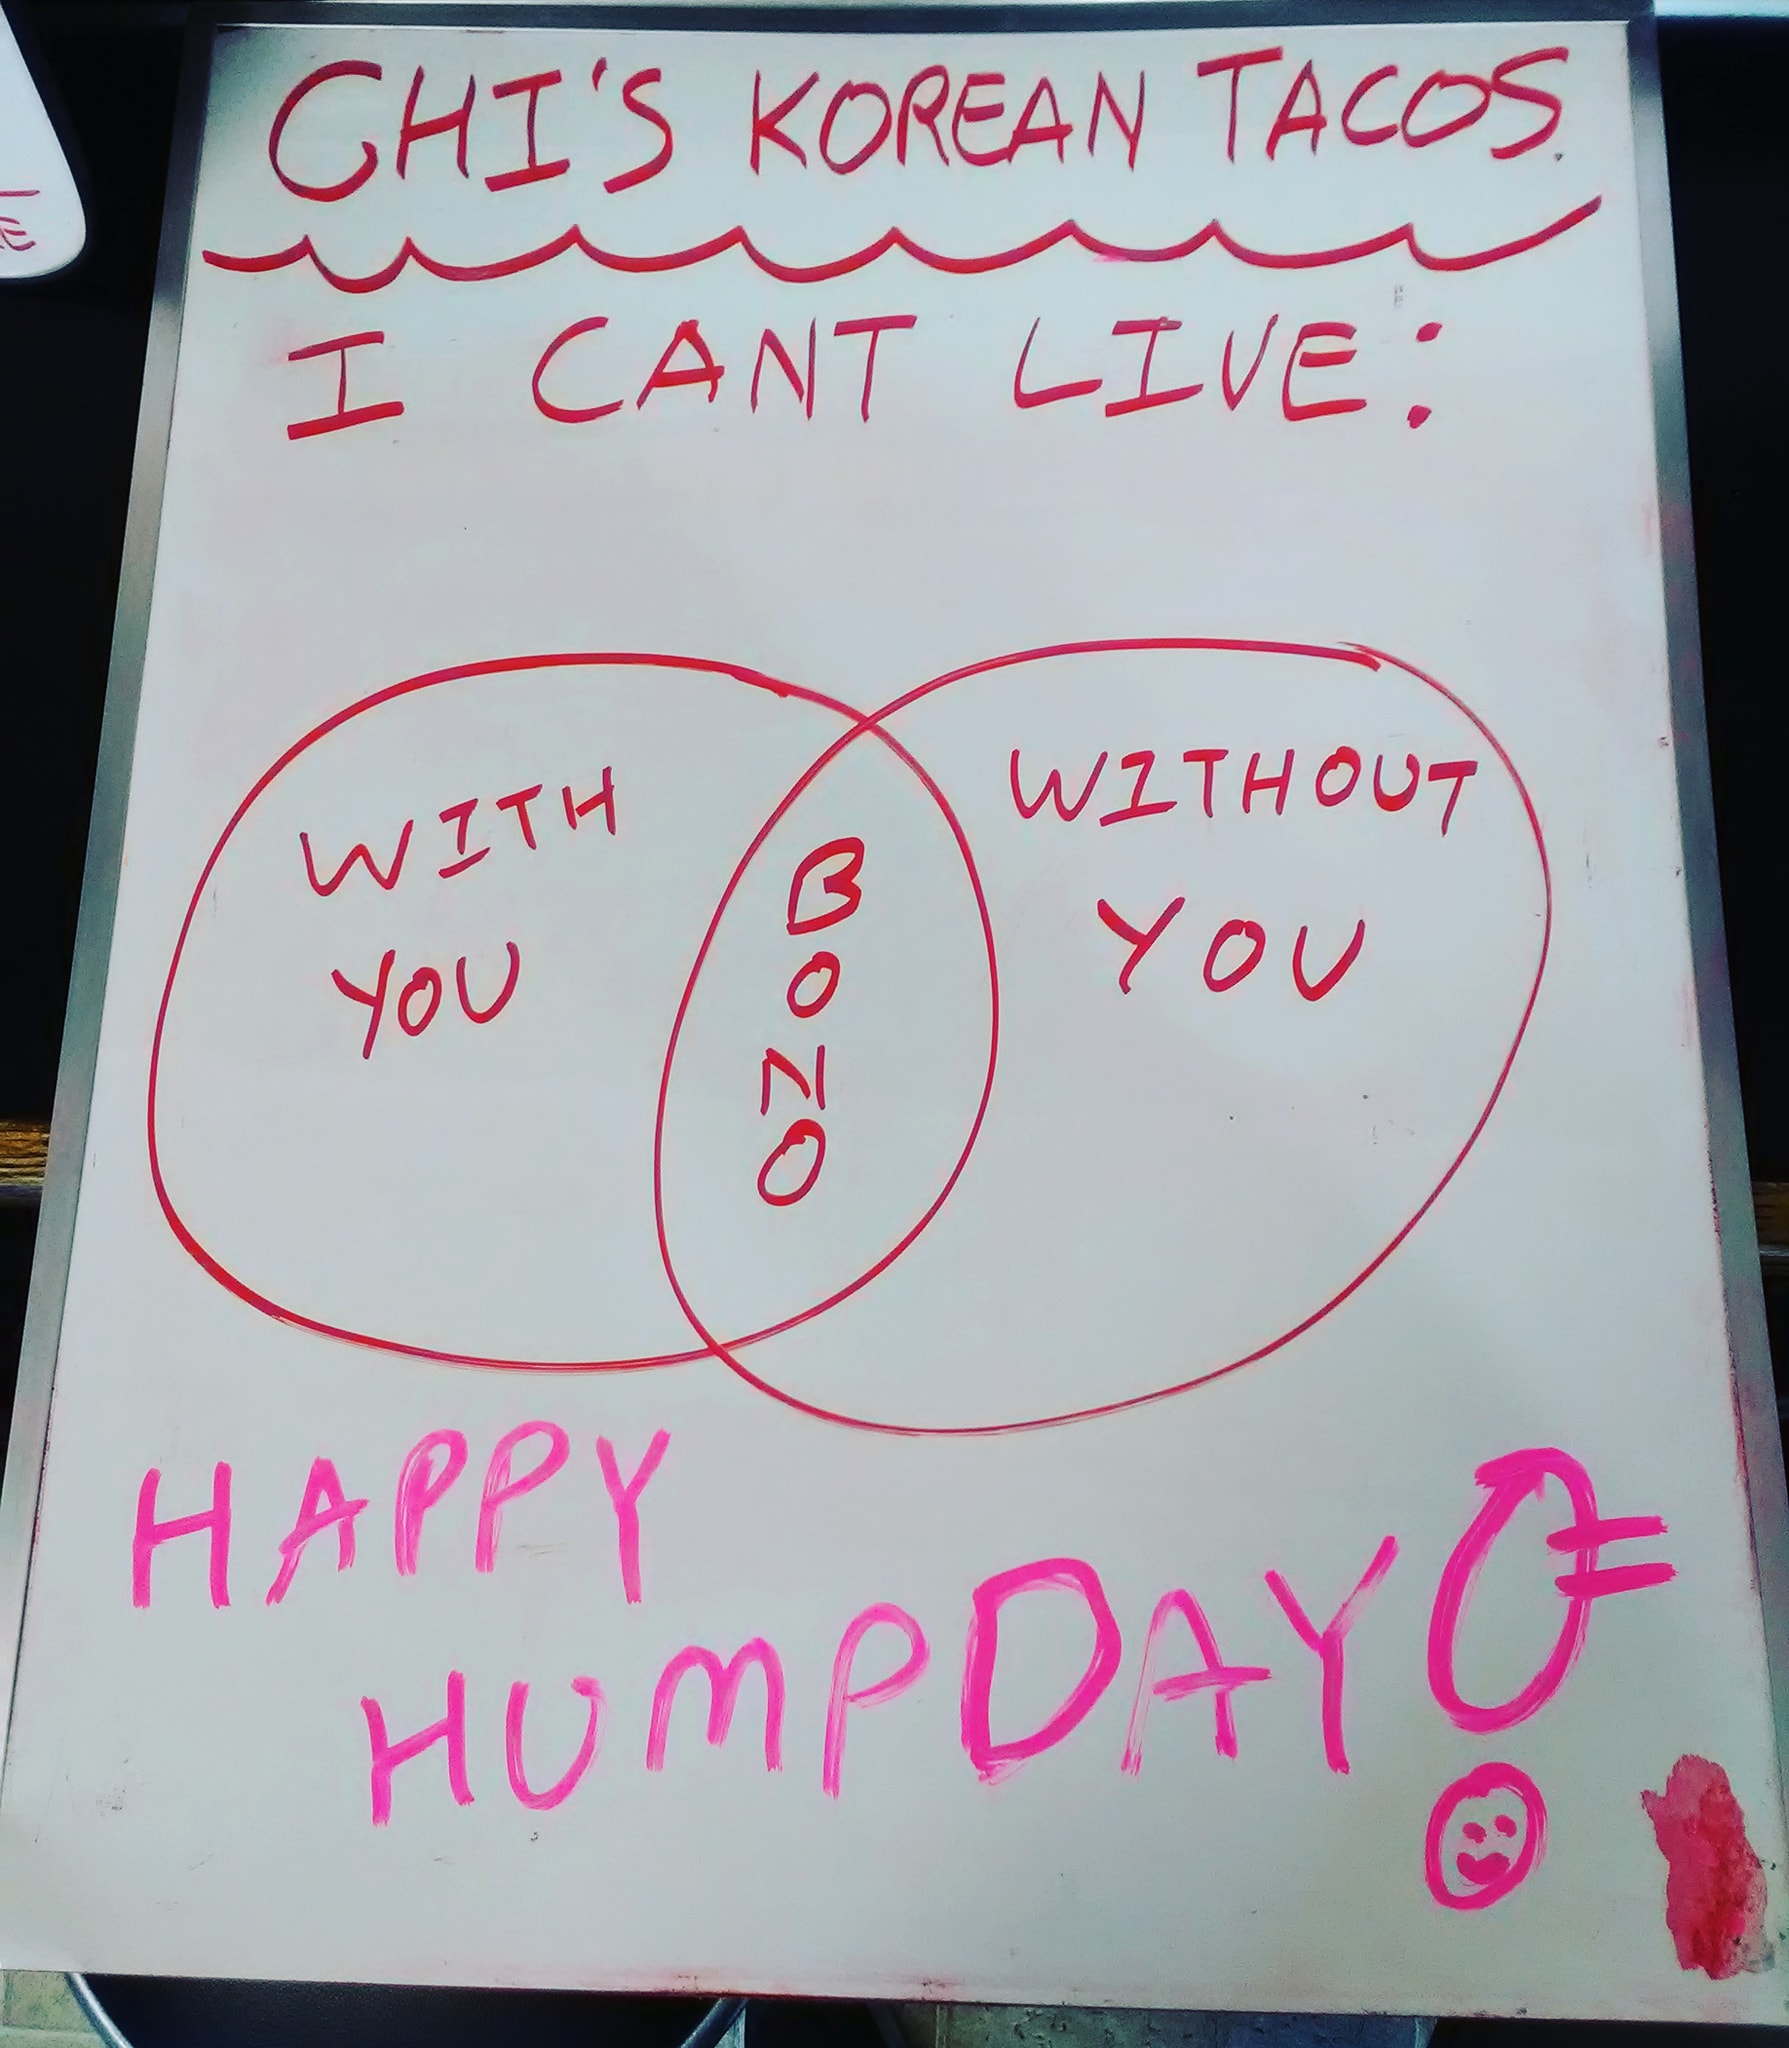 CHI'S KOREAN TACOS.
I CANT LIVE:
WITH
YOU
BONO
WITHOUT
YOU
HAPPY
HUMPDAY